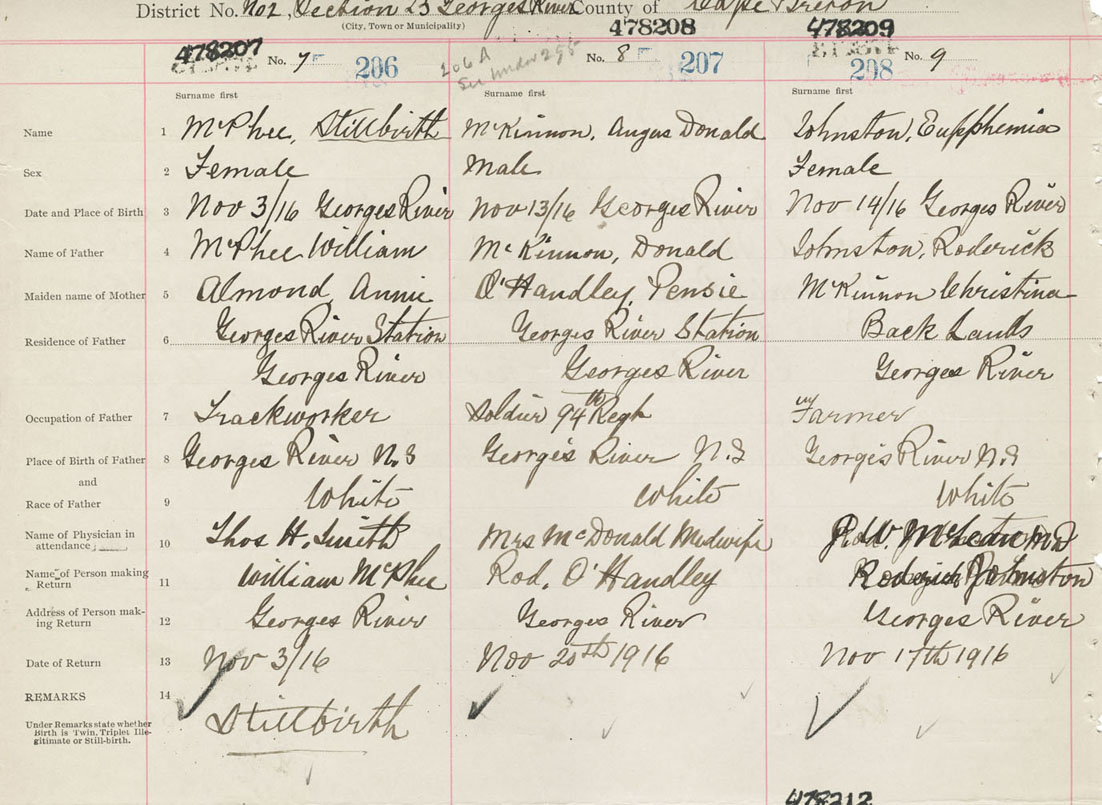 District No. No 2, Section 23 Georges River County of Cape Breton
(City, Town or Municipality)
478207 478208 478209
No. 7 206 206 A See under 295 No. 8 207 208 No. 9
Surname first Surname first Surname first
Name 1 McPhee, Stillbirth McKinnon, Angus Donald Johnston, Eupphemia
Sex 2 Female Male Female
Date and Place of Birth 3 Nov 3/16 Georges River Nov 13/16 Georges River Nov 14/16 Georges River
Name of Father 4 McPhee William McKinnon, Donald Johnston, Roderick
Maiden name of Mother 5 Almond, Annie O'Handley, Pensie McKinnon Christina
Residence of Father 6 Georges River Station Georges River Station Back Lands
Georges River Georges River Georges River
Occupation of Father 7 Trackworker Soldier 94th Regt Farmer
Place of Birth of Father 8 Georges River N.S Georges River N.S Georges River N.S
and
Race of Father 9 White White White
Name of Physician in attendance 10 Thos H. Smith Mrs McDonald Midwife McLean M.D
Name of Person making Return 11 William McPhee Rod. O'Handley Roderick Johnston
Address of Person making Return 12 Georges River Georges River Georges River
Date of Return 13 Nov 3/16 Nov 20th 1916 Nov 17th 1916
REMARKS 14 Stillbirth
Under Remarks state whether
Birth is Twin, Triplet Ille-
gitimate or Still-birth.
478212